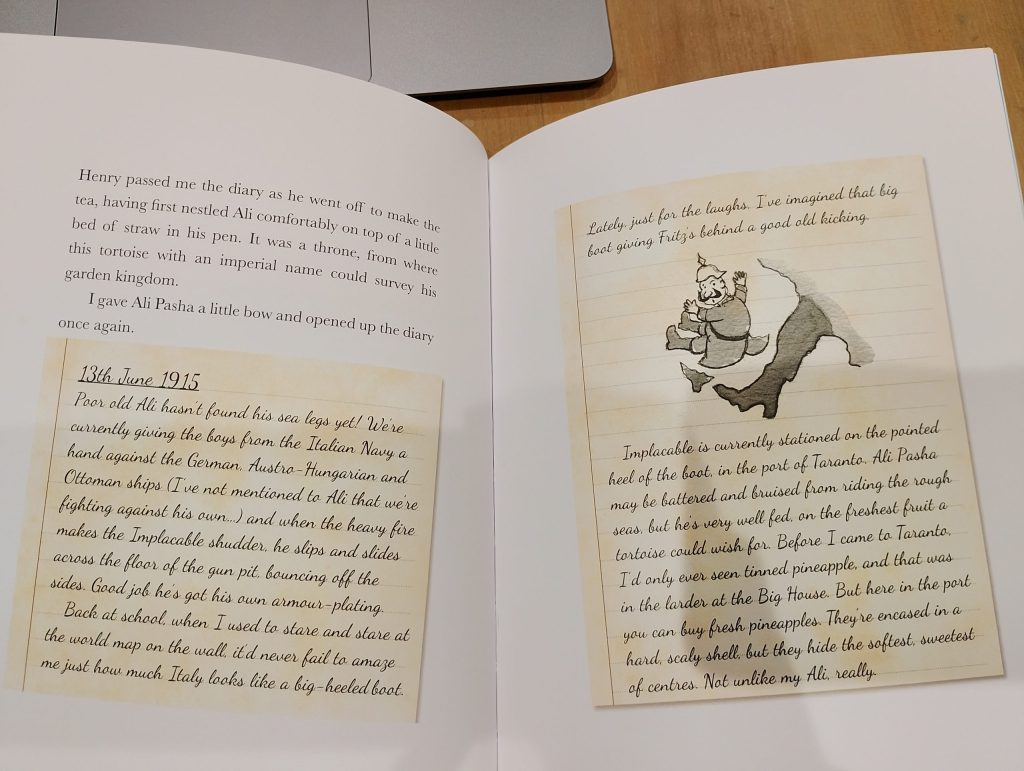 Henry passed me the diary as he went off to make the
tea, having first nestled Ali comfortably on top of a little
bed of straw in his pen. It was a throne, from where
this tortoise with an imperial name could survey his
garden kingdom.
I gave Ali Pasha a little bow and opened up the diary
once again.
13th June 1915
Poor old Ali hasn't found his sea legs yet! We're
currently giving the boys from the Italian Navy a
hand against the German, Austro-Hungarian and
Ottoman ships (I've not mentioned to Ali that we're
fighting against his own...) and when the heavy fire
makes the Implacable shudder, he slips and slides
across the floor of the gun pit, bouncing off the
sides. Good job he's got his own armour-plating.
Back at school, when I used to stare and stare at
the world map on the wall, it'd never fail to amaze
me just how much Italy looks like a big-heeled boot.
Lately, just for the laughs, I've imagined that big
boot giving Fritz's behind a good old kicking.
Implacable is currently stationed on the pointed
heel of the boot, in the port of Taranto. Ali Pasha
may be battered and bruised from riding the rough
seas, but he's very well fed, on the freshest fruit a
tortoise could wish for. Before I came to Taranto,
I'd only ever seen tinned pineapple, and that was
in the larder at the Big House. But here in the port
you can buy fresh pineapples. They're encased in a
hard, scaly shell, but they hide the softest, sweetest
of centres. Not unlike my Ali, really.